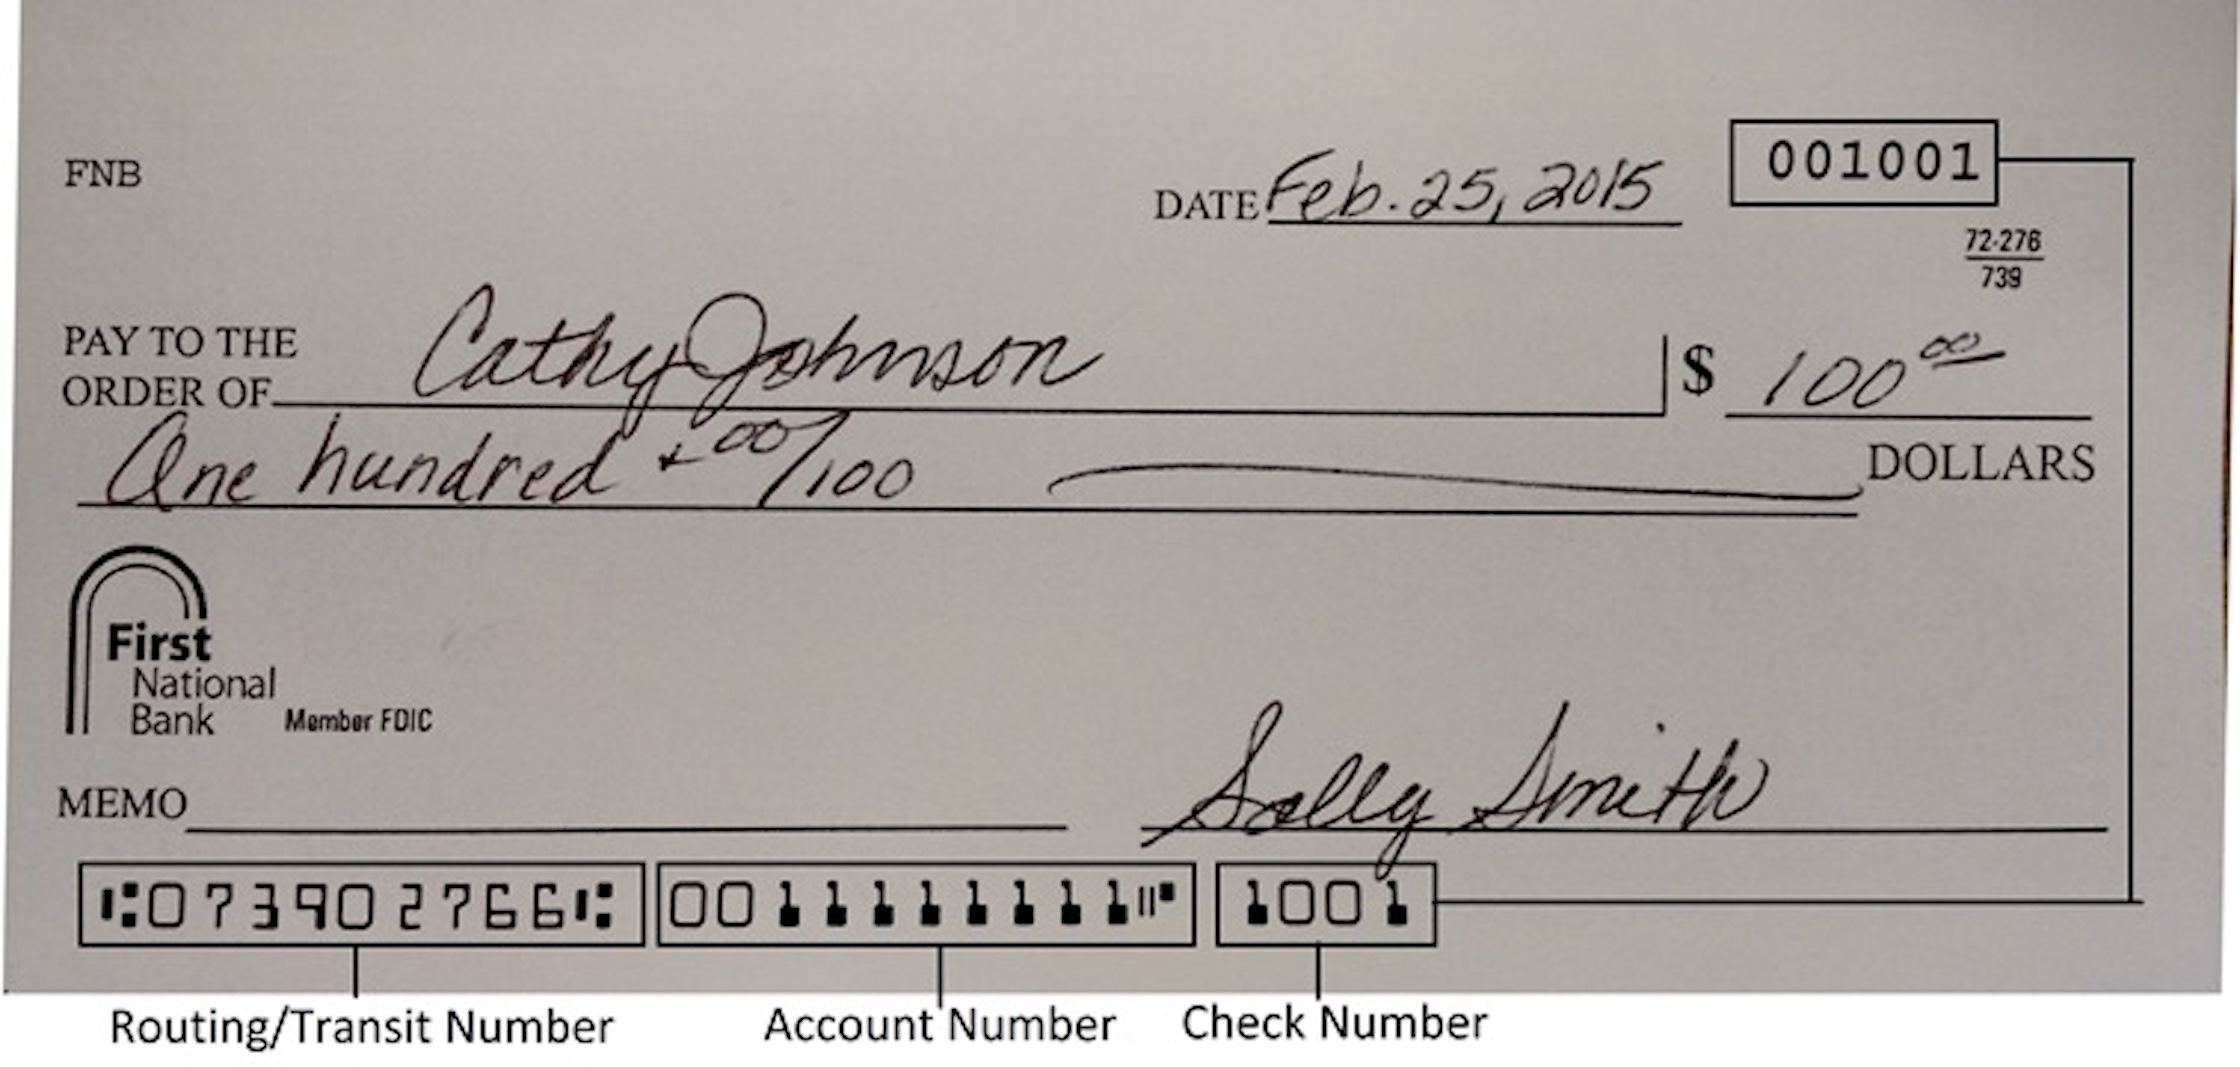 001001
FNB
DATE Feb. 25, 2015
72-276
739
PAY TO THE
ORDER OF Cathy Johnson $ 100 00
One hundred + 00/100 DOLLARS
First
National
Bank Member FDIC
MEMO Sally Smith
⑆073902766⑆ 0011111111⑈ 1001
Routing/Transit Number Account Number Check Number